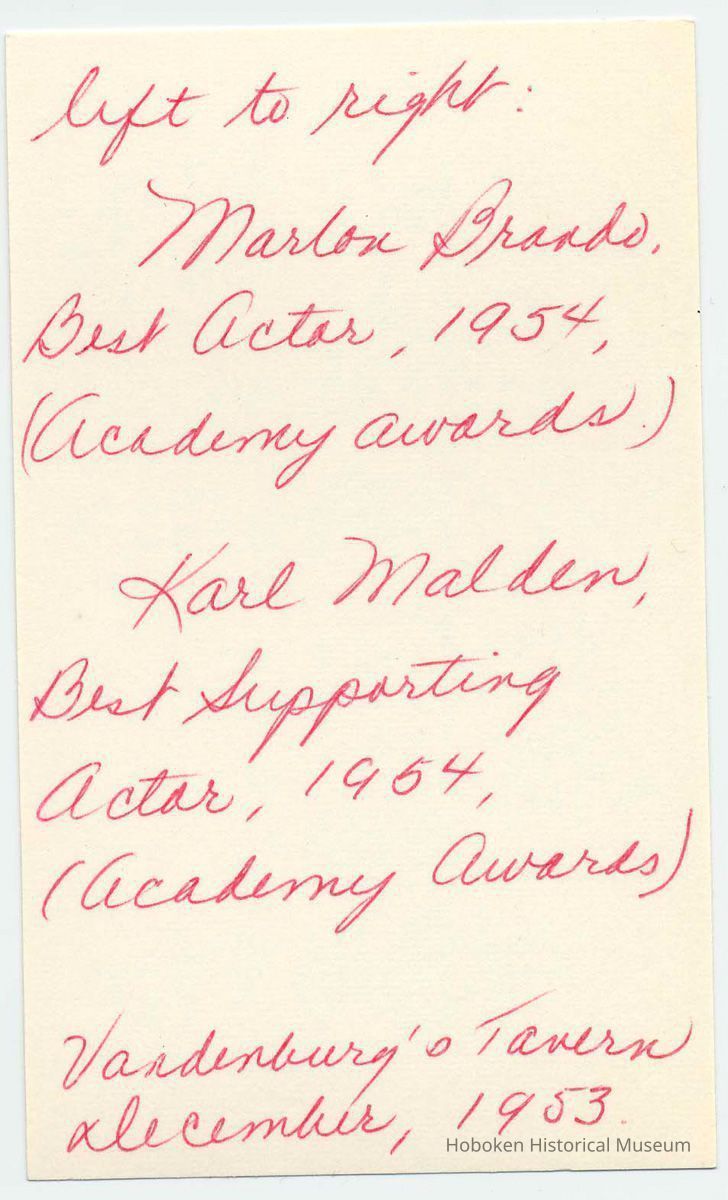 left to right:
Marlon Brando,
Best Actor, 1954,
(Academy awards.)
Karl Malden,
Best Supporting
Actor, 1954,
(Academy Awards)
Vandenburg's Tavern
December, 1953.
Hoboken Historical Museum